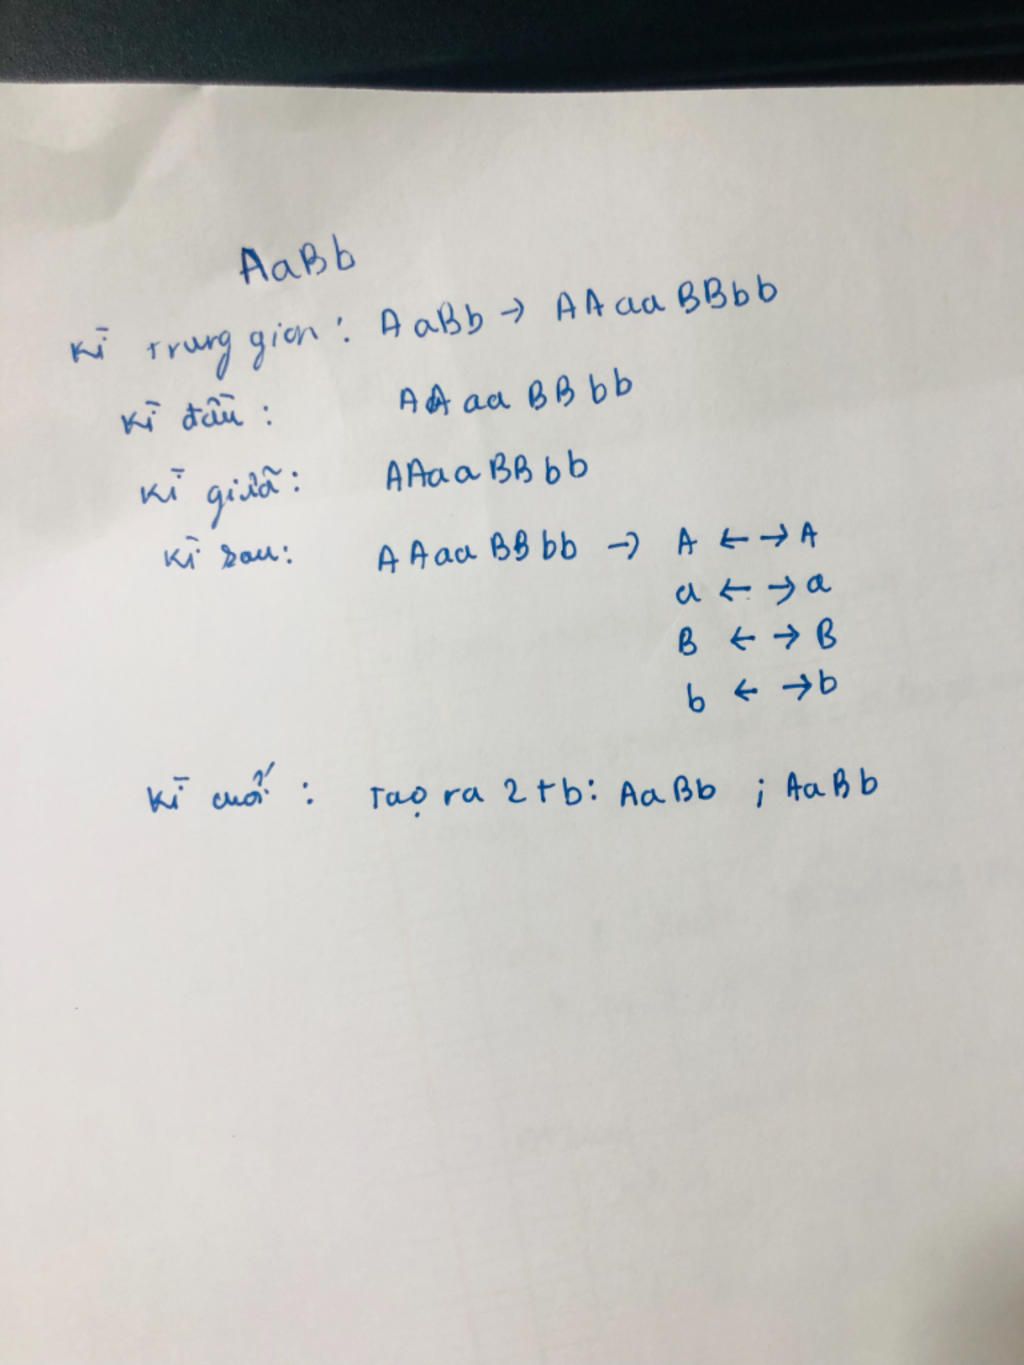 AaBb
Kì trung gian : AaBb → AAaaBBbb
Kì đầu : AAaaBBbb
Kì giữa : AAaaBBbb
Kì sau : AAaaBBbb → A ← → A
a ← → a
B ← → B
b ← → b
Kì cuối : Tạo ra 2 tb : AaBb ; AaBb